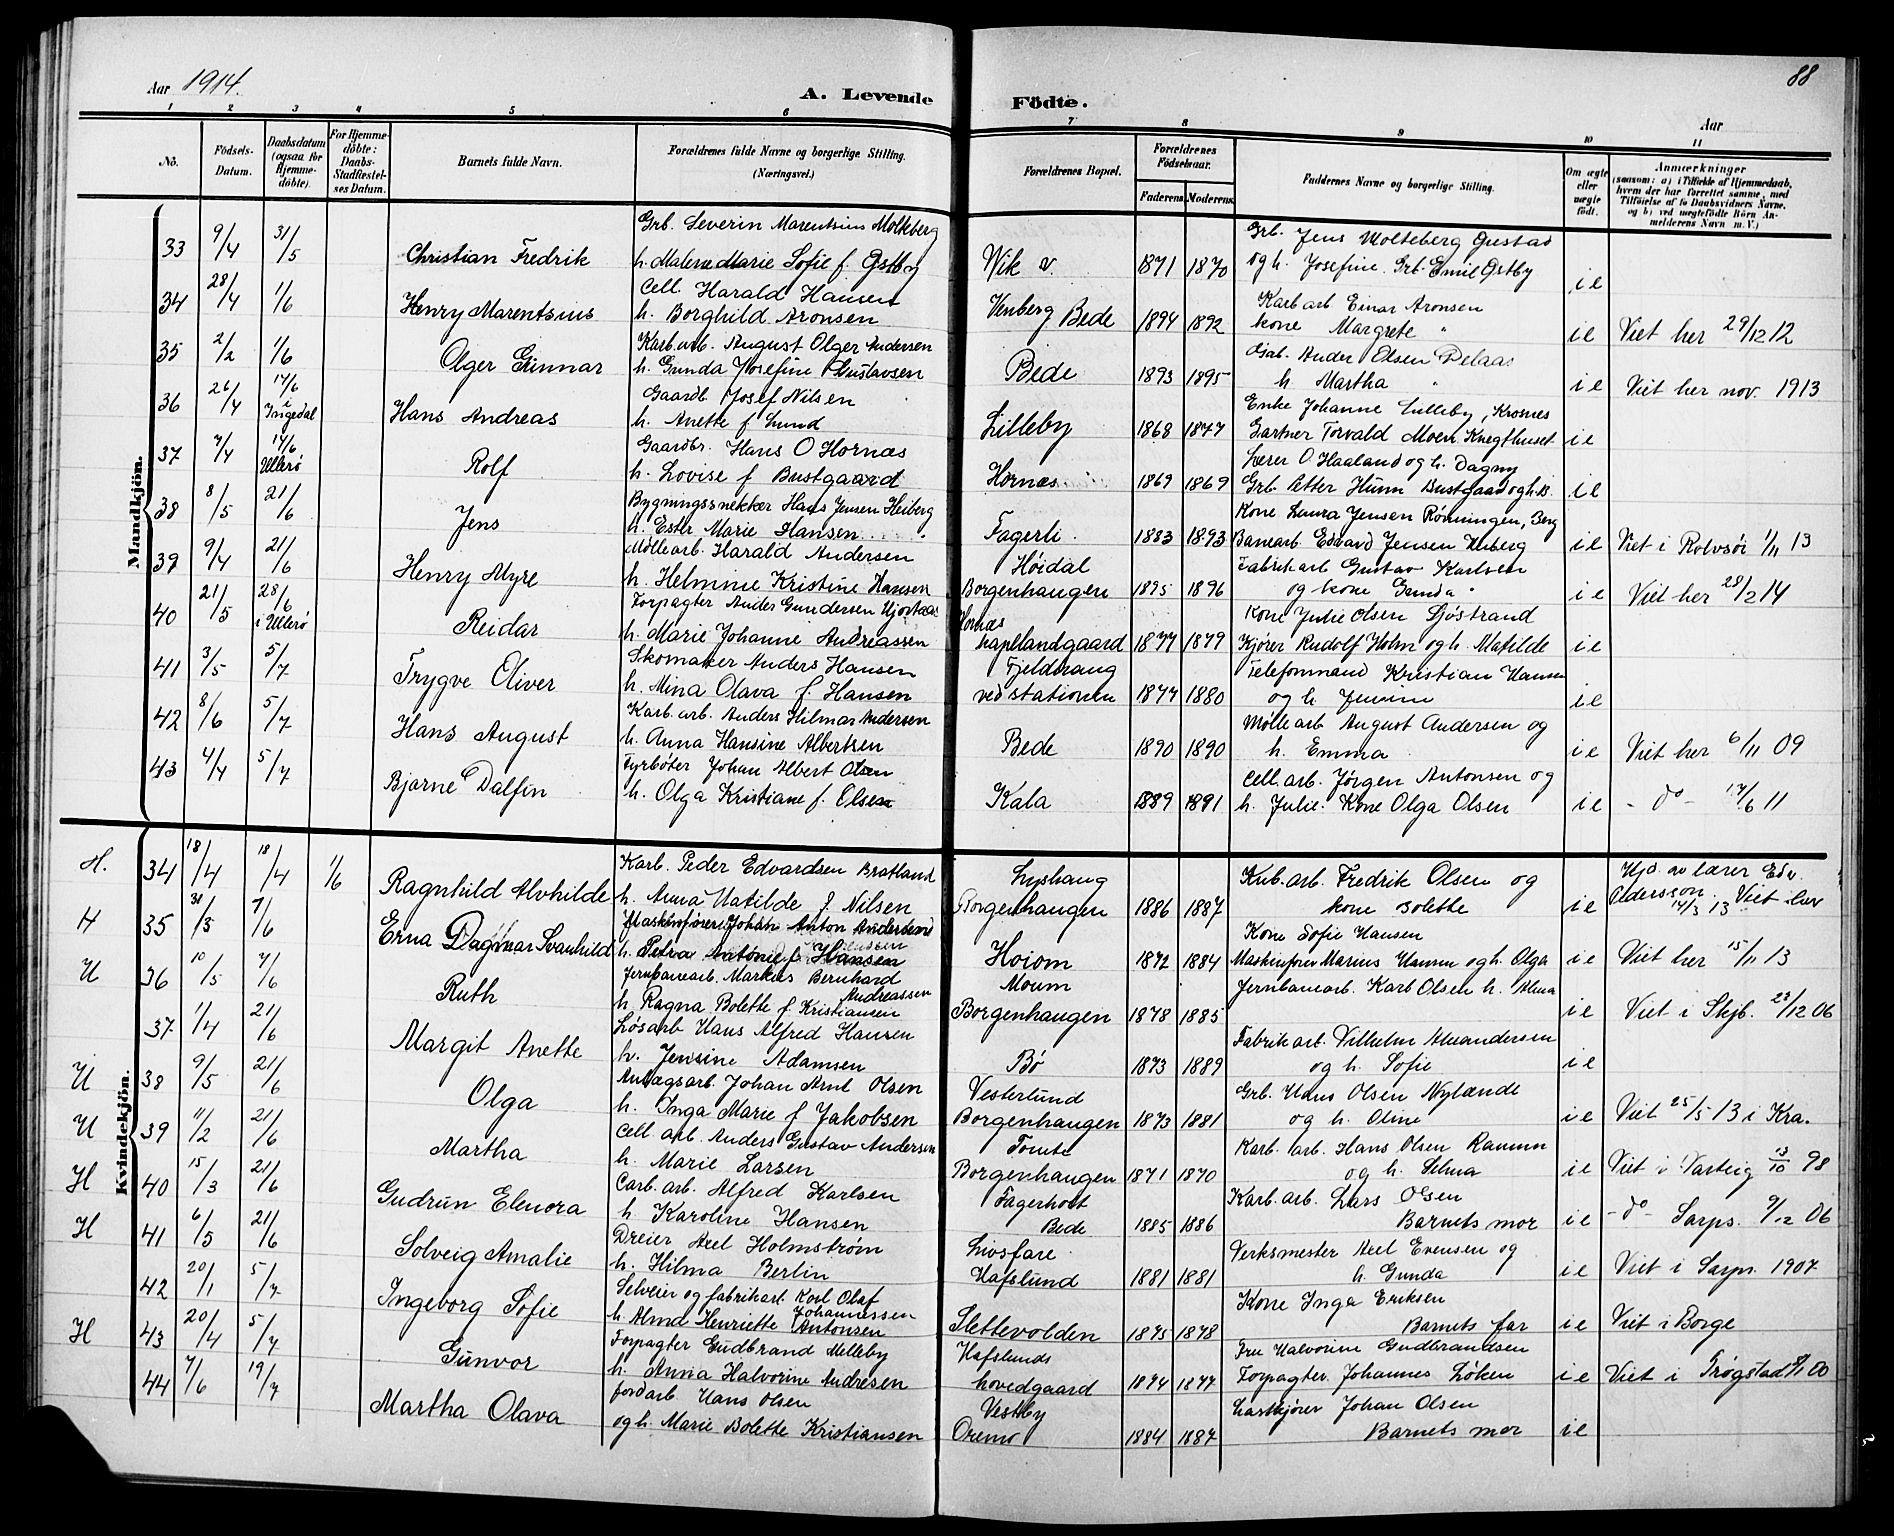 Aar 1914.
A. Levende
Födte.
88
Aar
1 2 3 4 5 6 7 8 9 10 11
No.
Födsels-Datum.
Daabsdatum (ogsaa for Hjemmedöbte).
For Hjemmedöbte: Daabs-Stadfæstelses Datum.
Barnets fulde Navn.
Forældrenes fulde Navne og borgerlige Stilling. (Næringsvei.)
Forældrenes Bopæl.
Forældrenes Födselsaar.
Faderens Moderens
Faddernes Navne og borgerlige Stilling.
Om ægte eller uægte födt.
Anmærkninger
(saasom: a) i Tilfælde af Hjemmedaab, hvem der har forrettet samme, med Tilföielse af to Daabsvidners Navne. og b) ved uægtefödte Börn Anmelderens Navn m. V.)
Mandkjön.
33 9/4 31/5 Christian Fredrik
Grb. Severin Marentsius Molteberg
h. Malene Marie Sofie f. Østby
Vik v. 1871 1870
Grb. Jens Molteberg Gustad
og h. Josefine. Grb. Emil Østby ie
34 28/4 1/6 Henry Marentsius
Cell. Harald Hansen
h. Borghild Aronsen
Venberg Bede 1894 1892
Karb arb Einar Aronsen
kone Margrete " ie Viet her 29/12 12
35 2/2 1/6 Olger Gunnar
Karb. arb. August Olger Andersen
h. Gunda Josefine Gustavsen
Bede 1893 1895
Ander Olsen
h Martha " ie Viet her nov. 1913
36 26/4 14/6 i Ingedal Hans Andreas
Gaardb Josef Nilsen
h. Anette f Lund
Lilleby 1868 1877
Enke Johanne Lilleby, Krosnes
Gartner Torvald Moen, Knegthuset ie
37 7/4 14/6 Ullerø Rolf
Gaardbr. Hans O Hornæs
h. Lovise f Bustgaard
Hornæs 1869 1869
Lærer O. Haaland og h. Dagny
Grb. Petter Hunn Bustgaard og h. ie
38 8/5 21/6 Jens
Bygningssnekker Hans Jensen Heiberg
h. Ester Marie Hansen
Fagerli 1883 1893
Kone Laura Jensen Rönningen, Berg
Banearb Edvard Jensen ie Viet i Rolvsöi 1/11 13
39 9/4 21/6 Henry Myre
Møllearb. Harald Andersen
h. Helmine Kristine Hansen
Høidal
Borgenhaugen 1895 1896
Fabrik arb Gustav Karlsen
og kone Gunda " ie Viet her 28/2 14
40 21/5 28/6 i Ullerø Reidar
Forpagter Anders Gundersen
h. Marie Johanne Andreassen
Hornæs
kapellandgaard 1877 1879
Kone Julie Olsen Sjöstrand
Kjører Rudolf Holm og h. Matilde ie
41 3/5 5/7 Trygve Oliver
Skomaker Anders Hansen
h. Mina Olava f. Hansen
Fjeldvang
ved stationen 1877 1880
Telefonmand Kristian Hansen
og h Jensine ie
42 8/6 5/7 Hans August
Karb. arb. Anders Hilmar Andersen
h. Anna Hansine Albertsen
Bede 1890 1890
Mølle arb August Andersen og
h. Emma ie Viet her 6/11 09
43 4/4 5/7 Bjarne Dalfin
Fyrbøter Johan Albert Olsen
h. Olga Kristiane f. Olsen
Kala 1889 1891
Cell. arb. Jörgen Antonsen og
h. Julie. Kone Olga Olsen ie - do - 17/6 11
Kvindekjön.
H. 34 18/4 18/4 1/6 Ragnhild Alvhilde
Karb. Peder Edvardsen Bratland
h. Anna Matilde f Nilsen
Lyshaug
Borgenhaugen 1886 1887
Kub. arb. Fredrik Olsen og
kone Bolette ie
Hjd. av lærer Edv.
Pedersson. Viet her
14/3 13
H 35 30/3 7/6 Erna Dagmar Svanhild
Maskinfører Johan Anton Andersen
h. Petra Antonie f Hansen
Hoiom 1872 1884
Kone Sofie Hansen
Maskinfører Marius Hansen og h. Olga ie Viet her 15/11 13
H 36 10/5 7/6 Ruth
Jernbanearb. Markus Bernhard
Andreassen
h. Ragna Bolette f Kristiansen
Moum
Borgenhaugen 1878 1885
Jernbanearb. Karl Olsen h. Alma ie Viet i Skjb. 23/12 06
37 1/4 21/6 Margit Anette
Løsarb Hans Alfred Hansen
h. Jensine Adamsen
Bö 1873 1889
Fabrikarb. Vilhelm Alexandersen
og h. Sofie ie
H 38 9/5 21/6 Olga
Anlægsarb. Johan Arnt Olsen
h. Inga Marie f Jakobsen
Vesterlund
Borgenhaugen 1873 1881
Grb. Hans Olsen Nylænde
og h. Oline ie Viet 25/5 13 i Kra.
H 39 11/2 21/6 Martha
Cell. arb. Anders Gustav Andersen
h. Marie Larsen
Tomte
Borgenhaugen 1871 1870
Karb. arb. Hans Olsen Ramm
og h. Selma ie Viet i Varteig 13/10 98
H 40 15/3 21/6 Gudrun Elenora
Carb. arb. Alfred Karlsen
h Karoline Hansen
Fagerholt
Bede 1885 1886
Karb. arb. Lars Olsen
Barnets mor ie - do - Sarps. 9/12 06
H 41 6/5 21/6 Solveig Amalie
Dreier Axel Holmstrøm
h. Hilma Berlin
Livsfare
Hafslund 1881 1881
Verksmester Axel Evensen og
h. Gunda ie Viet i Sarps. 1907
42 20/1 5/7 Ingeborg Sofie
Selveier og fabrikarb. Karl Olaf
Johannessen
h Alma Henriette Antonsen
Slettevolden 1875 1878
Kone Inga Eriksen
Barnets far ie Viet i Borge
H 43 20/4 5/7 Gunvor
Forpagter Gudbrand Melleby
h. Anna Halvorine Andresen
Hafslunds
hovedgaard 1874 1877
Fru Halvorine Gudbrandsen
Forpagter Johannes Løken ie Viet i Trøgstad 00
44 7/6 19/7 Martha Olava
Jordarb Hans Olsen
og h. Marie Bolette Kristiansen
Vestby
Oremo 1884 1887
Lastkjører Johan Olsen
Barnets mor ie